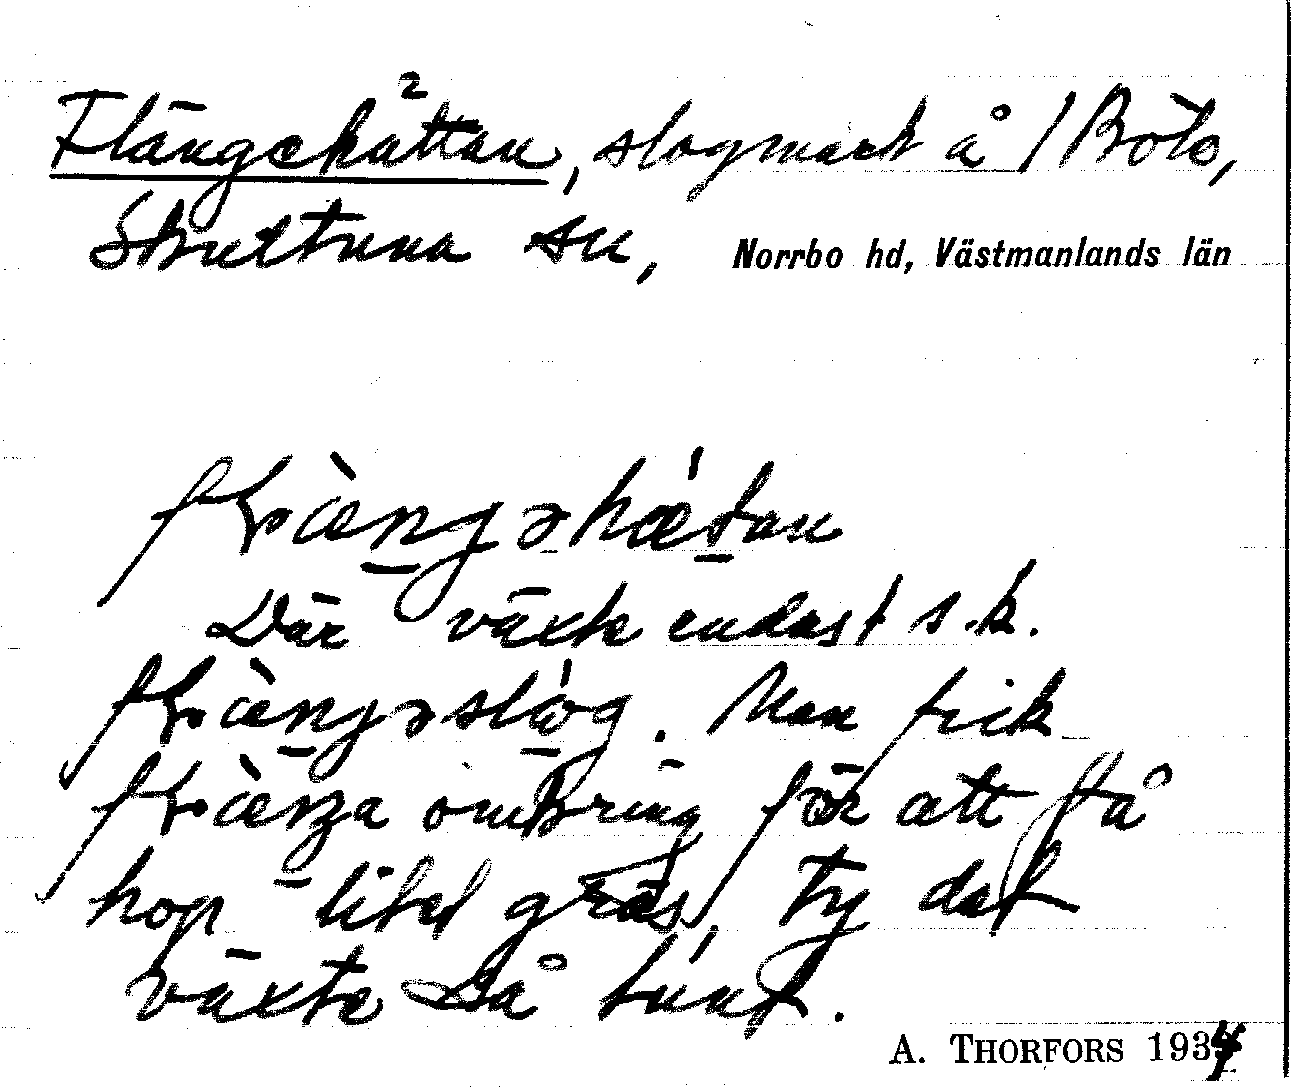 Flängehättan, slogmark å /Böle,
Skultuna sn, Norrbo hd, Västmanlands län
flæ̀ŋgəhǽtan
Där växte endast s.k.
flæ̀ŋgəslóg. Man fick
flæ̀ŋga omkring för att få
hop litet gräs, ty det
växte så tunt.
A. THORFORS 1934